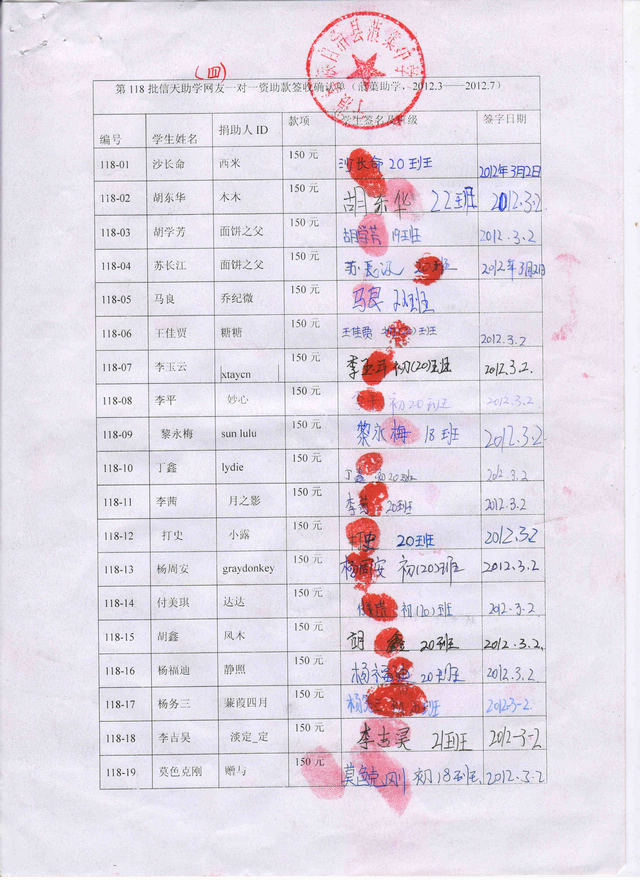 (四)
第 118 批信天助学网友一对一资助款签收确认单(沮菜助学,2012.3——2012.7)
编号 学生姓名 捐助人 ID 款项 学生签名及班级 签字日期
118-01 沙长命 西米 150 元 沙长命 20班 2012年3月2日
118-02 胡东华 木木 150 元 胡东华 22班 2012.3.2
118-03 胡学芳 面饼之父 150 元 胡学芳 19班 2012.3.2
118-04 苏长江 面饼之父 150 元 苏长江 20班 2012年3月2日
118-05 马良 乔纪微 150 元 马良
118-06 王佳贾 糖糖 150 元 王佳贾 班 2012.3.2
118-07 李玉云 xtaycn 150 元 李玉云 初(20)班 2012.3.2.
118-08 李平 妙心 150 元 李平 初20班 2012.3.2
118-09 黎永梅 sun lulu 150 元 黎永梅 18班 2012.3.2
118-10 丁鑫 lydie 150 元 丁鑫 初20班 2012.3.2
118-11 李茜 月之影 150 元 李茜 20班 2012.3.2
118-12 打史 小露 150 元 打史 20班 2012.3.2
118-13 杨周安 graydonkey 150 元 杨周安 初(20)班 2012.3.2
118-14 付美琪 达达 150 元 初(20)班 2012.3.2
118-15 胡鑫 风木 150 元 胡鑫 20班 2012.3.2
118-16 杨福迪 静照 150 元 杨福迪 20班 2012.3.2
118-17 杨务三 蒹葭四月 150 元 杨务三 班 2012-3-2.
118-18 李古昊 淡定_定 150 元 李古昊 21班 2012-3-2
118-19 莫色克刚 赠与 150 元 莫色克刚 初18班 2012.3.2